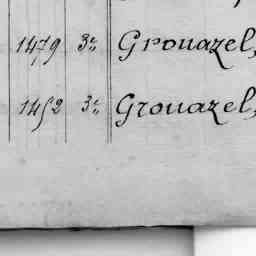 1479 3e Grouazel,
1452 3e Grouazel,